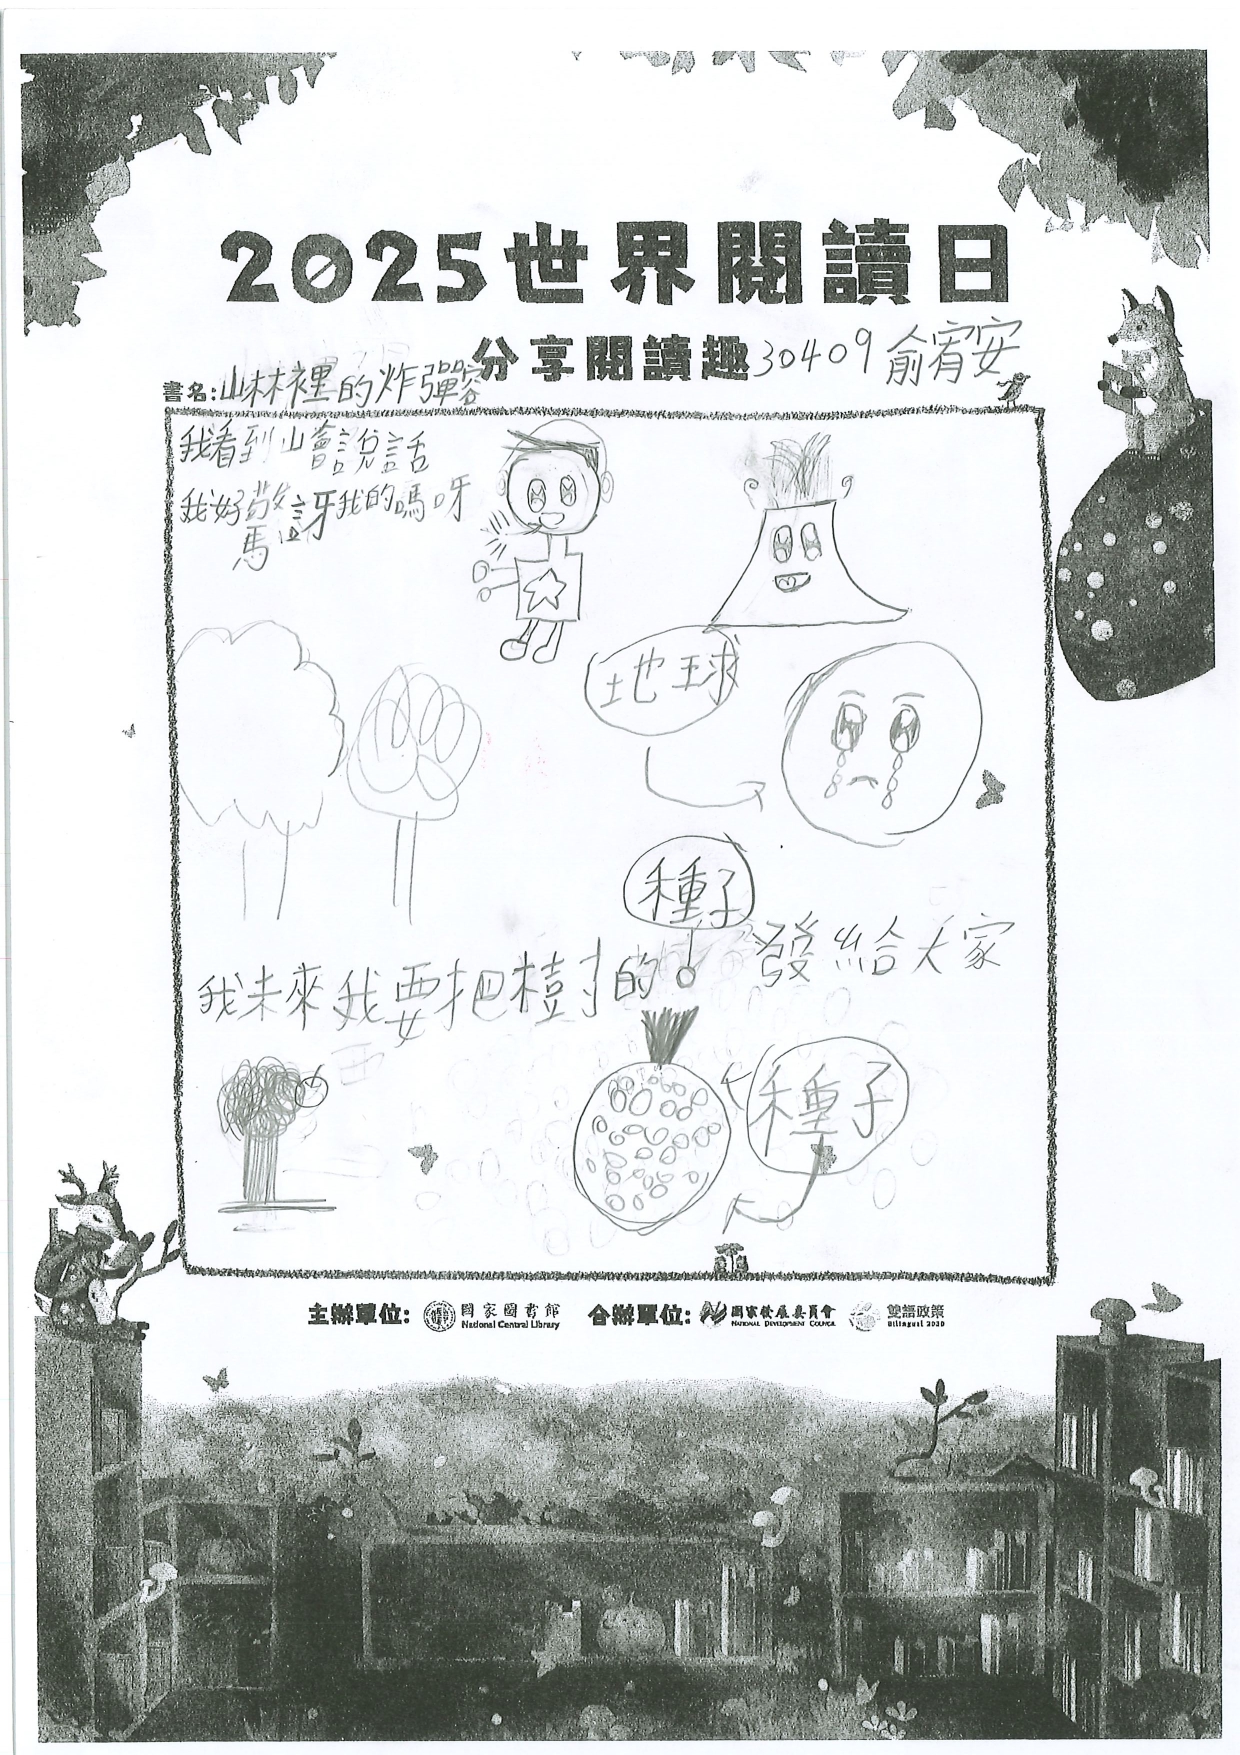 2025世界閱讀日
分享閱讀趣 30409 俞宥安
書名:山林裡的炸彈客
我看到山會說話
我好驚訝我的嗎呀
地球
種子
我未來我要把樹的 發給大家
種子
主辦單位: 國家圖書館 National Central Library 合辦單位: 國家發展委員會 NATIONAL DEVELOPMENT COUNCIL 雙語政策 Bilingual 2030